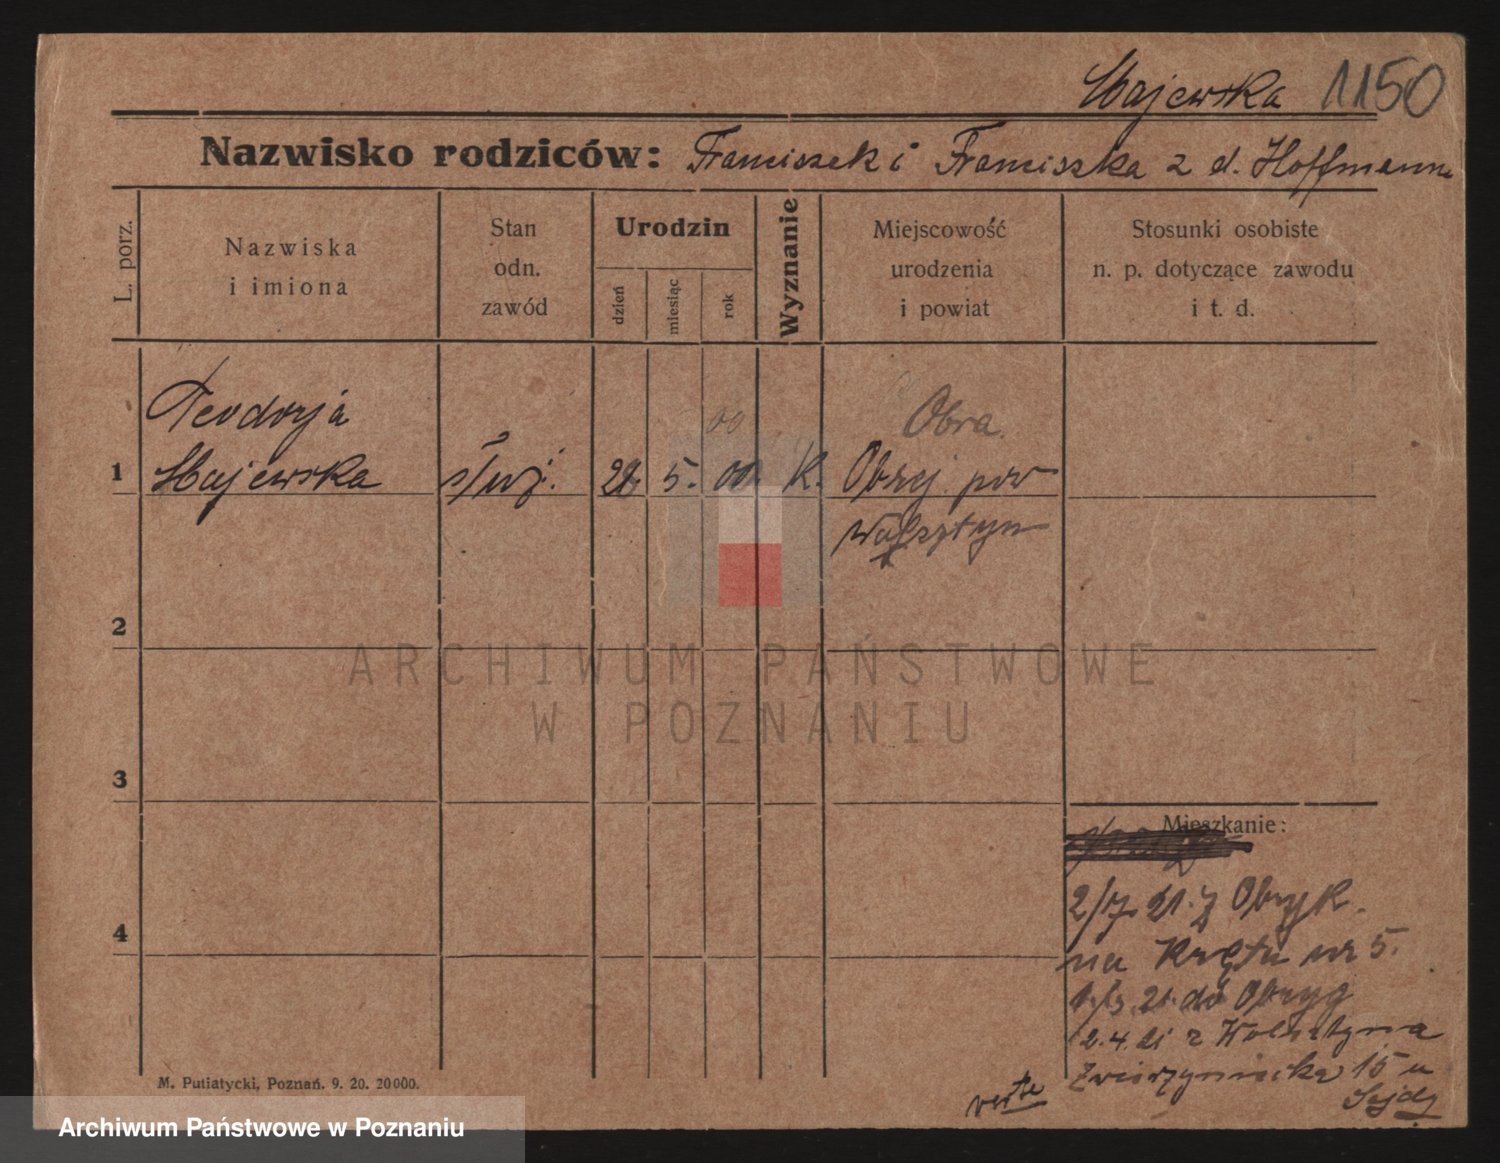 Majewska 1150
Nazwisko rodziców: Franciszek i Franciszka z d. Hoffmann
L. porz.
Nazwiska
i imiona
Stan
odn.
zawód
Urodzin
dzień
miesiąc
rok
Wyznanie
Miejscowość
urodzenia
i powiat
Stosunki osobiste
n. p. dotyczące zawodu
i t. d.
Teodozja
00
Obra.
1 Majewska służ. 28. 5. 00. K. Obrej pow
Wolsztyn
2
ARCHIWUM PAŃSTWOWE
W POZNANIU
3
Mieszkanie:
2/7. 21. z
4
na nr 5.
21. do
2. 4. 21 z Wolsztyna
Zwierzyniecka 15 u
verte
M. Putiatycki, Poznań. 9. 20. 20000.
Archiwum Państwowe w Poznaniu